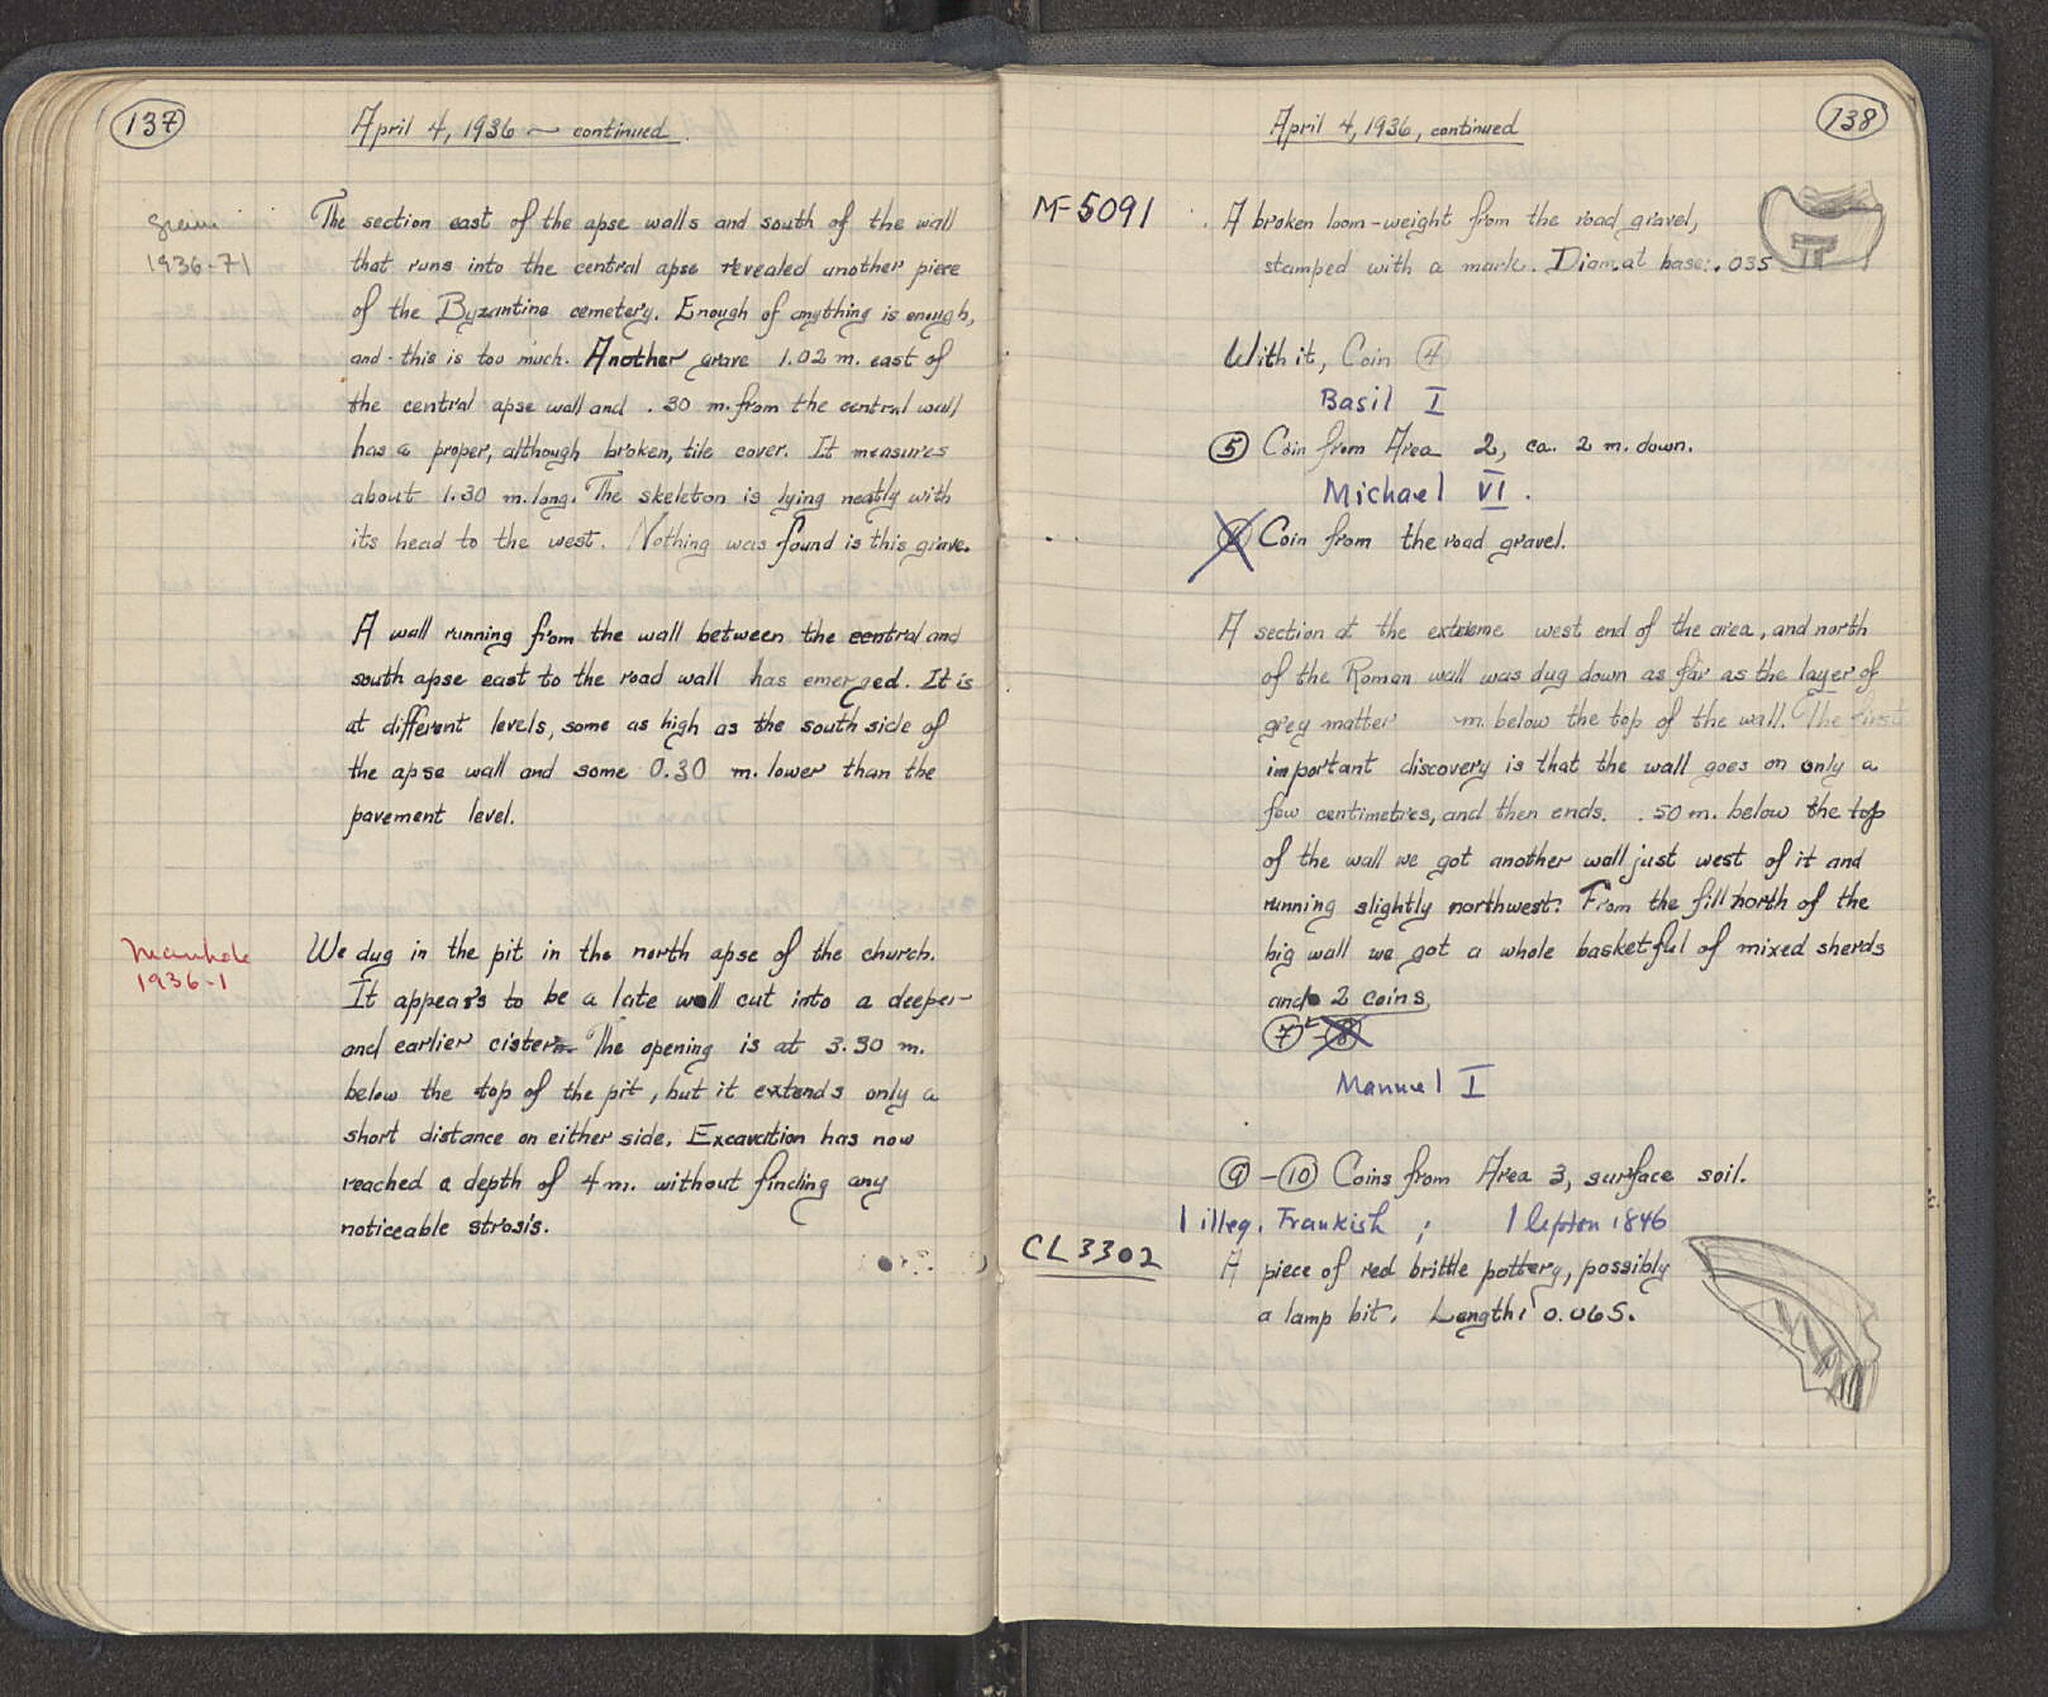 137
April 4, 1936 ~ continued.
1936-71
The section east of the apse walls and south of the wall
that runs into the central apse revealed another piece
of the Byzantine cemetery. Enough of anything is enough,
and this is too much. Another grave 1.02 m. east of
the central apse wall and .30 m. from the central wall
has a proper, although broken, tile cover. It measures
about 1.30 m. long. The skeleton is lying neatly with
its head to the west. Nothing was found is this grave.
A wall running from the wall between the central and
south apse east to the road wall has emerged. It is
at different levels, some as high as the south side of
the apse wall and some 0.30 m. lower than the
pavement level.
Manhole
1936-1
We dug in the pit in the north apse of the church.
It appears to be a late well cut into a deeper
and earlier cistern. The opening is at 3.30 m.
below the top of the pit, but it extends only a
short distance on either side. Excavation has now
reached a depth of 4 m. without finding any
noticeable strosis.
138
April 4, 1936, continued
MF 5091
A broken loom-weight from the road gravel,
stamped with a mark. Diam. at base: .035
With it, Coin 4
Basil I
5 Coin from Area 2, ca. 2 m. down.
Michael VI.
6 Coin from the road gravel.
A section at the extreme west end of the area, and north
of the Roman wall was dug down as far as the layer of
grey matter m. below the top of the wall. The first
important discovery is that the wall goes on only a
few centimetres, and then ends. .50 m. below the top
of the wall we got another wall just west of it and
running slightly northwest. From the fill north of the
big wall we got a whole basketful of mixed sherds
and 2 coins,
7 - 8
Manuel I
9 - 10 Coins from Area 3, surface soil.
1 illeg. Frankish ; 1 lepton 1846
CL 3302
A piece of red brittle pottery, possibly
a lamp bit. Length: 0.065.